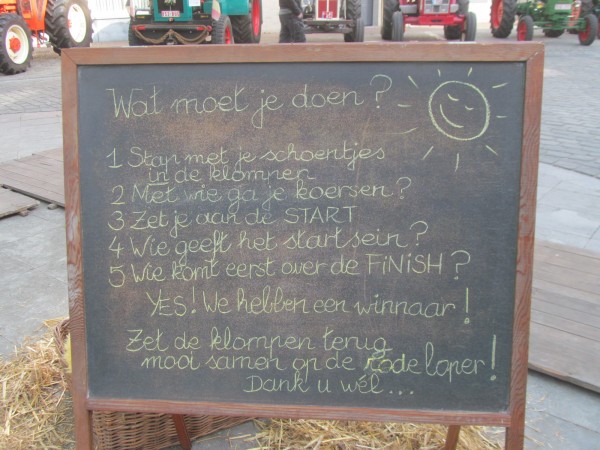 Wat moet je doen?
1 Stap met je schoentjes
in de klompen
2 Met wie ga je koersen?
3 Zet je aan de START
4 Wie geeft het startsein?
5 Wie komt eerst over de FiNiSH?
YES! We hebben een winnaar!
Zet de klompen terug
mooi samen op de rode loper!
Dank u wél...